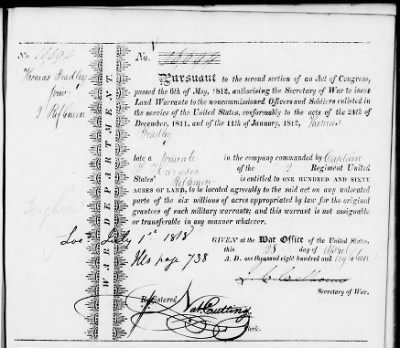 Thomas Bradley
2 Riflemen
WAR DEPARTMENT.
Pursuant to the second section of an Act of Congress,
passed the 6th of May, 1812, authorising the Secretary of War to issue
Land Warrants to the noncommissioned Officers and Soldiers enlisted in
the service of the United States, conformably to the acts of the 24th of
December, 1811, and of the 11th of January, 1812, Thomas
Bradley
late a Private in the company commanded by Captain
of the 2 Regiment United
States' Riflemen is entitled to ONE HUNDRED AND SIXTY
ACRES OF LAND, to be located agreeably to the said act on any unlocated
parts of the six millions of acres appropriated by law for the original
grantees of such military warrants; and this warrant is not assignable
or transferable in any manner whatever.
Loc. July 1st 1818
GIVEN at the War Office of the United States,
this 28 day of April
A. D. one thousand eight hundred and eighteen
page 738
J. C. Calhoun
Secretary of War.
Registered
Nat Cutting
Clerk.